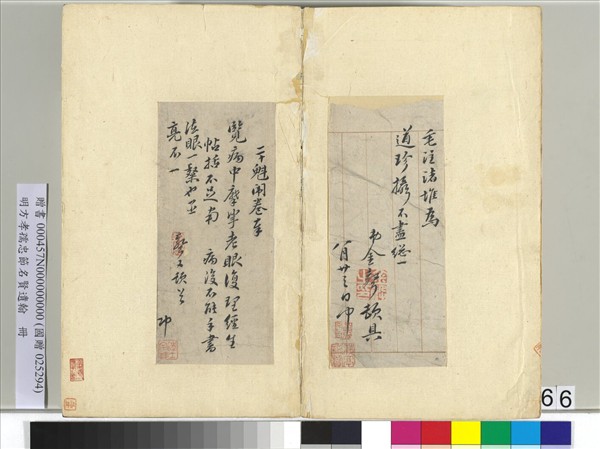 毛汪諸堆為
道珍攝不盡總一
弟金聲頓具
八月廿三日沖
二于魁閑卷奉
覽病中摩挲老眼復理經生
帖括不足當 病後不能手書
法眼一粲也並
亮不一
聲又頓首
沖
贈書 000457N000000000 (國贈 025294)
明方孝孺忠節名賢遺翰 冊
66